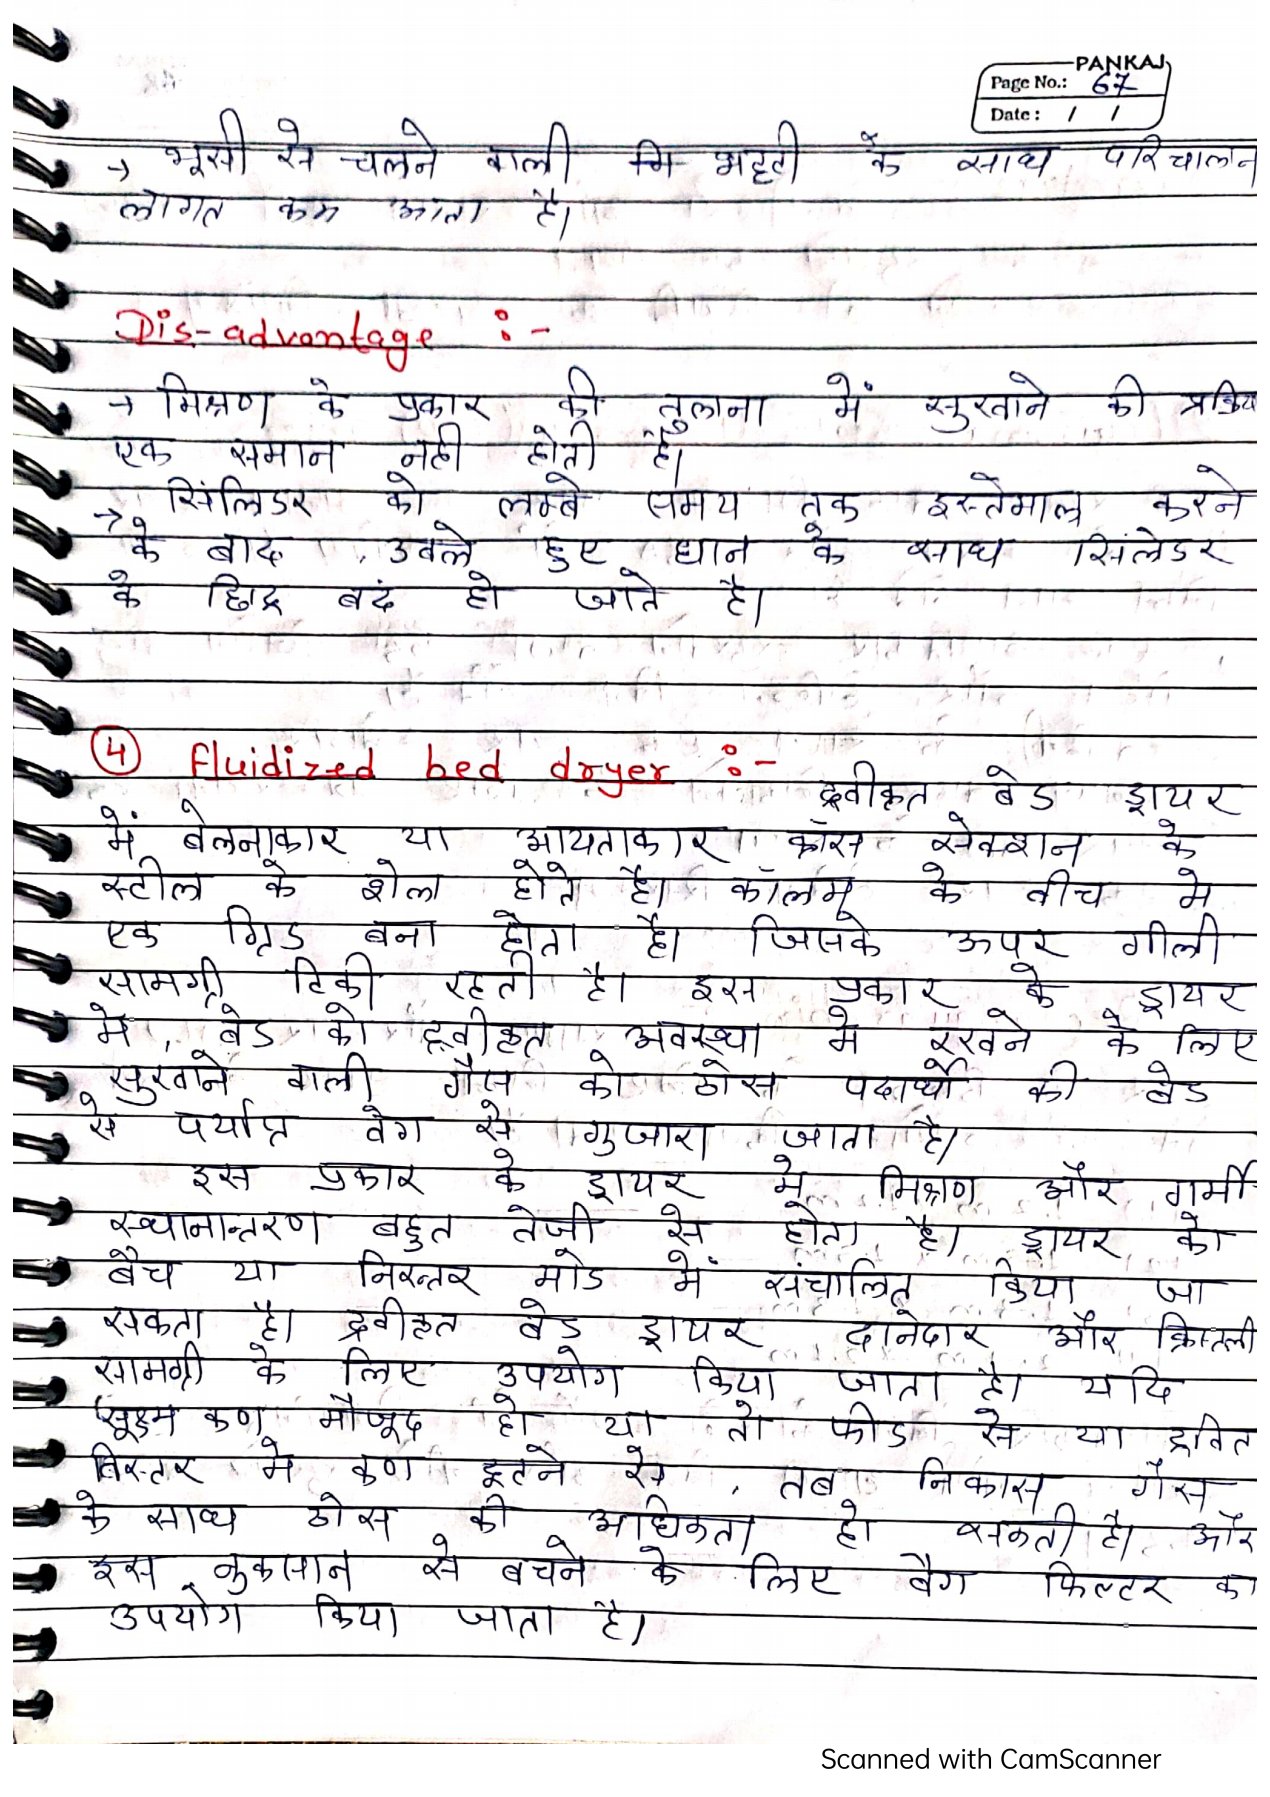 PANKAJ
Page No.: 67
Date : / /
→ भूसी से चलने वाली भट्टी के साथ परिचालन
लागत कम आता है।
Dis-advantage :-
→ मिश्रण के प्रकार की तुलना में सुखाने की प्रक्रिया
एक समान नही होती है।
→ सिंलिडर को लम्बे समय तक इस्तेमाल करने
के बाद उबले हुए धान के साथ सिंलेडर
के छिद्र बदं हो जाते है।
4 fluidized bed dryer :-
द्रवीकृत बेड ड्रायर
में बेलनाकार या आयताकार क्रॉस सेक्शन के
स्टील के शेल होते है। कॉलम के बीच मे
एक ग्रिड बना होता है। जिसके ऊपर गीली
सामग्री टिकी रहती है। इस प्रकार के ड्रायर
मे, बेड को द्रवीकृत अवस्था मे रखने के लिए
सुखाने वाली गैस को ठोस पदार्थो की बेड
से पर्याप्त वेग से गुजारा जाता है।
इस प्रकार के ड्रायर मे मिश्रण और गर्मी
स्थानान्तरण बहुत तेजी से होता है। ड्रायर को
बैच या निरन्तर मोड में संचालित किया जा
सकता है। द्रवीकृत बेड ड्रायर दानेदार और क्रिस्तली
सामग्री के लिए उपयोग किया जाता है। यदि
सूक्ष्म कण मौजूद हो या तो फीड से या द्रवित
बिस्तर मे कण टूटने से, तब निकास गैस
के साथ ठोस की अधिकता हो सकती है। और
इस नुकसान से बचने के लिए बैग फिल्टर का
उपयोग किया जाता है।
Scanned with CamScanner